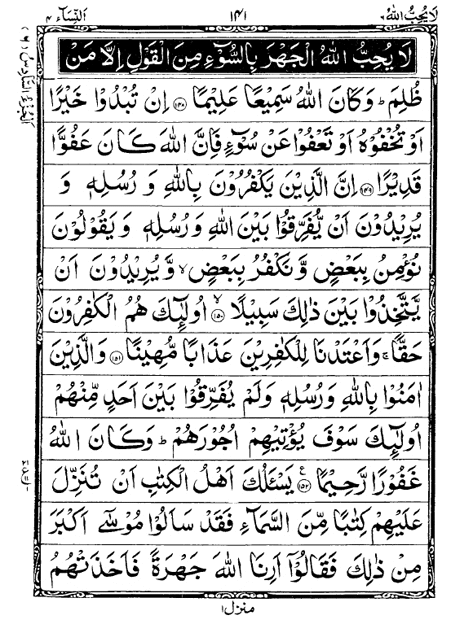 لَا يُحِبُّ اللّٰهُ ٦
١٤١
اَلنِّسَآء ٤
لَا يُحِبُّ اللّٰهُ الْجَهْرَ بِالسُّوْٓءِ مِنَ الْقَوْلِ اِلَّا مَنْ
ظُلِمَ ؕ وَكَانَ اللّٰهُ سَمِيْعًا عَلِيْمًا ﴿١٤٨﴾ اِنْ تُبْدُوْا خَيْرًا
اَوْ تُخْفُوْهُ اَوْ تَعْفُوْا عَنْ سُوْٓءٍ فَاِنَّ اللّٰهَ كَانَ عَفُوًّا
قَدِيْرًا ﴿١٤٩﴾ اِنَّ الَّذِيْنَ يَكْفُرُوْنَ بِاللّٰهِ وَ رُسُلِهٖ وَ
يُرِيْدُوْنَ اَنْ يُّفَرِّقُوْا بَيْنَ اللّٰهِ وَرُسُلِهٖ وَ يَقُوْلُوْنَ
نُؤْمِنُ بِبَعْضٍ وَّ نَكْفُرُ بِبَعْضٍ ۙ وَّ يُرِيْدُوْنَ اَنْ
يَّتَّخِذُوْا بَيْنَ ذٰلِكَ سَبِيْلًا ﴿١٥٠﴾ ۙ اُولٰٓئِكَ هُمُ الْكٰفِرُوْنَ
حَقًّا ۚ وَاَعْتَدْنَا لِلْكٰفِرِيْنَ عَذَابًا مُّهِيْنًا ﴿١٥١﴾ وَالَّذِيْنَ
اٰمَنُوْا بِاللّٰهِ وَرُسُلِهٖ وَلَمْ يُفَرِّقُوْا بَيْنَ اَحَدٍ مِّنْهُمْ
اُولٰٓئِكَ سَوْفَ يُؤْتِيْهِمْ اُجُوْرَهُمْ ؕ وَكَانَ اللّٰهُ
غَفُوْرًا رَّحِيْمًا ﴿١٥٢﴾ ع يَسْئَلُكَ اَهْلُ الْكِتٰبِ اَنْ تُنَزِّلَ
عَلَيْهِمْ كِتٰبًا مِّنَ السَّمَآءِ فَقَدْ سَاَلُوْا مُوْسٰٓى اَكْبَرَ
مِنْ ذٰلِكَ فَقَالُوْٓا اَرِنَا اللّٰهَ جَهْرَةً فَاَخَذَتْهُمُ
منزل ١
اَلْجُزْءُ السَّادِسُ (٦)